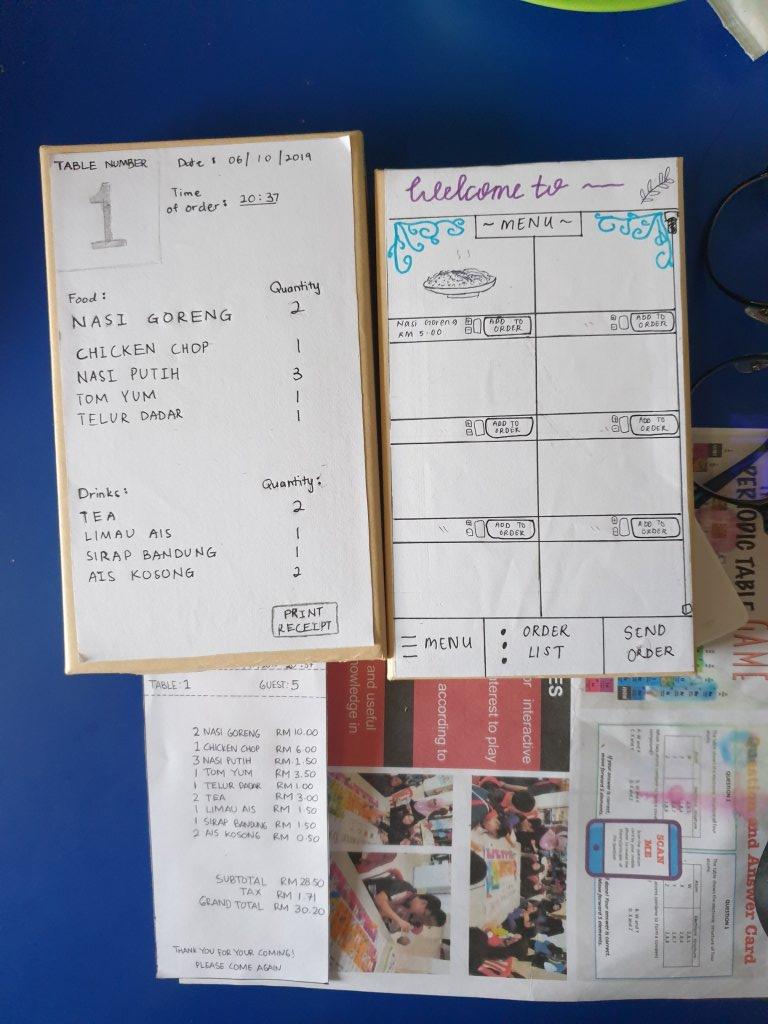 TABLE NUMBER
Date : 06/10/2019
1
Time
of order : 20:37
Food :
Quantity
NASI GORENG 2
CHICKEN CHOP 1
NASI PUTIH 3
TOM YUM 1
TELUR DADAR 1
Drinks :
Quantity :
TEA 2
LIMAU AIS 1
SIRAP BANDUNG 1
AIS KOSONG 2
PRINT
RECEIPT
Welcome to
~ MENU ~
Nasi Goreng
RM 5.00
ADD TO
ORDER
ADD TO
ORDER
ADD TO
ORDER
ADD TO
ORDER
ADD TO
ORDER
ADD TO
ORDER
MENU
ORDER
LIST
SEND
ORDER
TABLE : 1 GUEST : 5
2 NASI GORENG RM 10.00
1 CHICKEN CHOP RM 6.00
3 NASI PUTIH RM 1.50
1 TOM YUM RM 3.50
1 TELUR DADAR RM 1.00
2 TEA RM 3.00
1 LIMAU AIS RM 1.50
1 SIRAP BANDUNG RM 1.50
2 AIS KOSONG RM 0.50
SUBTOTAL RM 28.50
TAX RM 1.71
GRAND TOTAL RM 30.20
THANK YOU FOR YOUR COMING!
PLEASE COME AGAIN
or interactive
nterest to play
according to
and useful
nowledge in
PERIODIC TABLE
GAME
and Answer Card
QUESTION 1
QUESTION 2
SCAN
ME